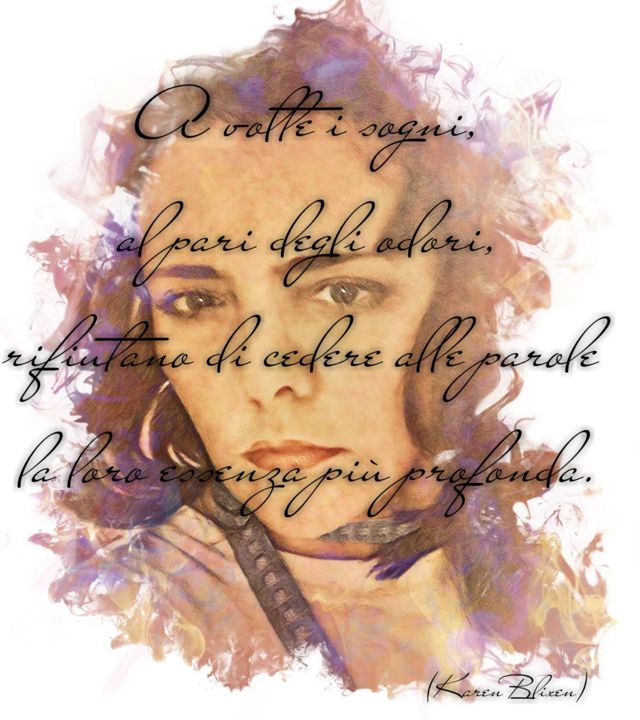 A volte i sogni,
al pari degli odori,
rifiutano di cedere alle parole
la loro essenza più profonda.
(Karen Blixen)